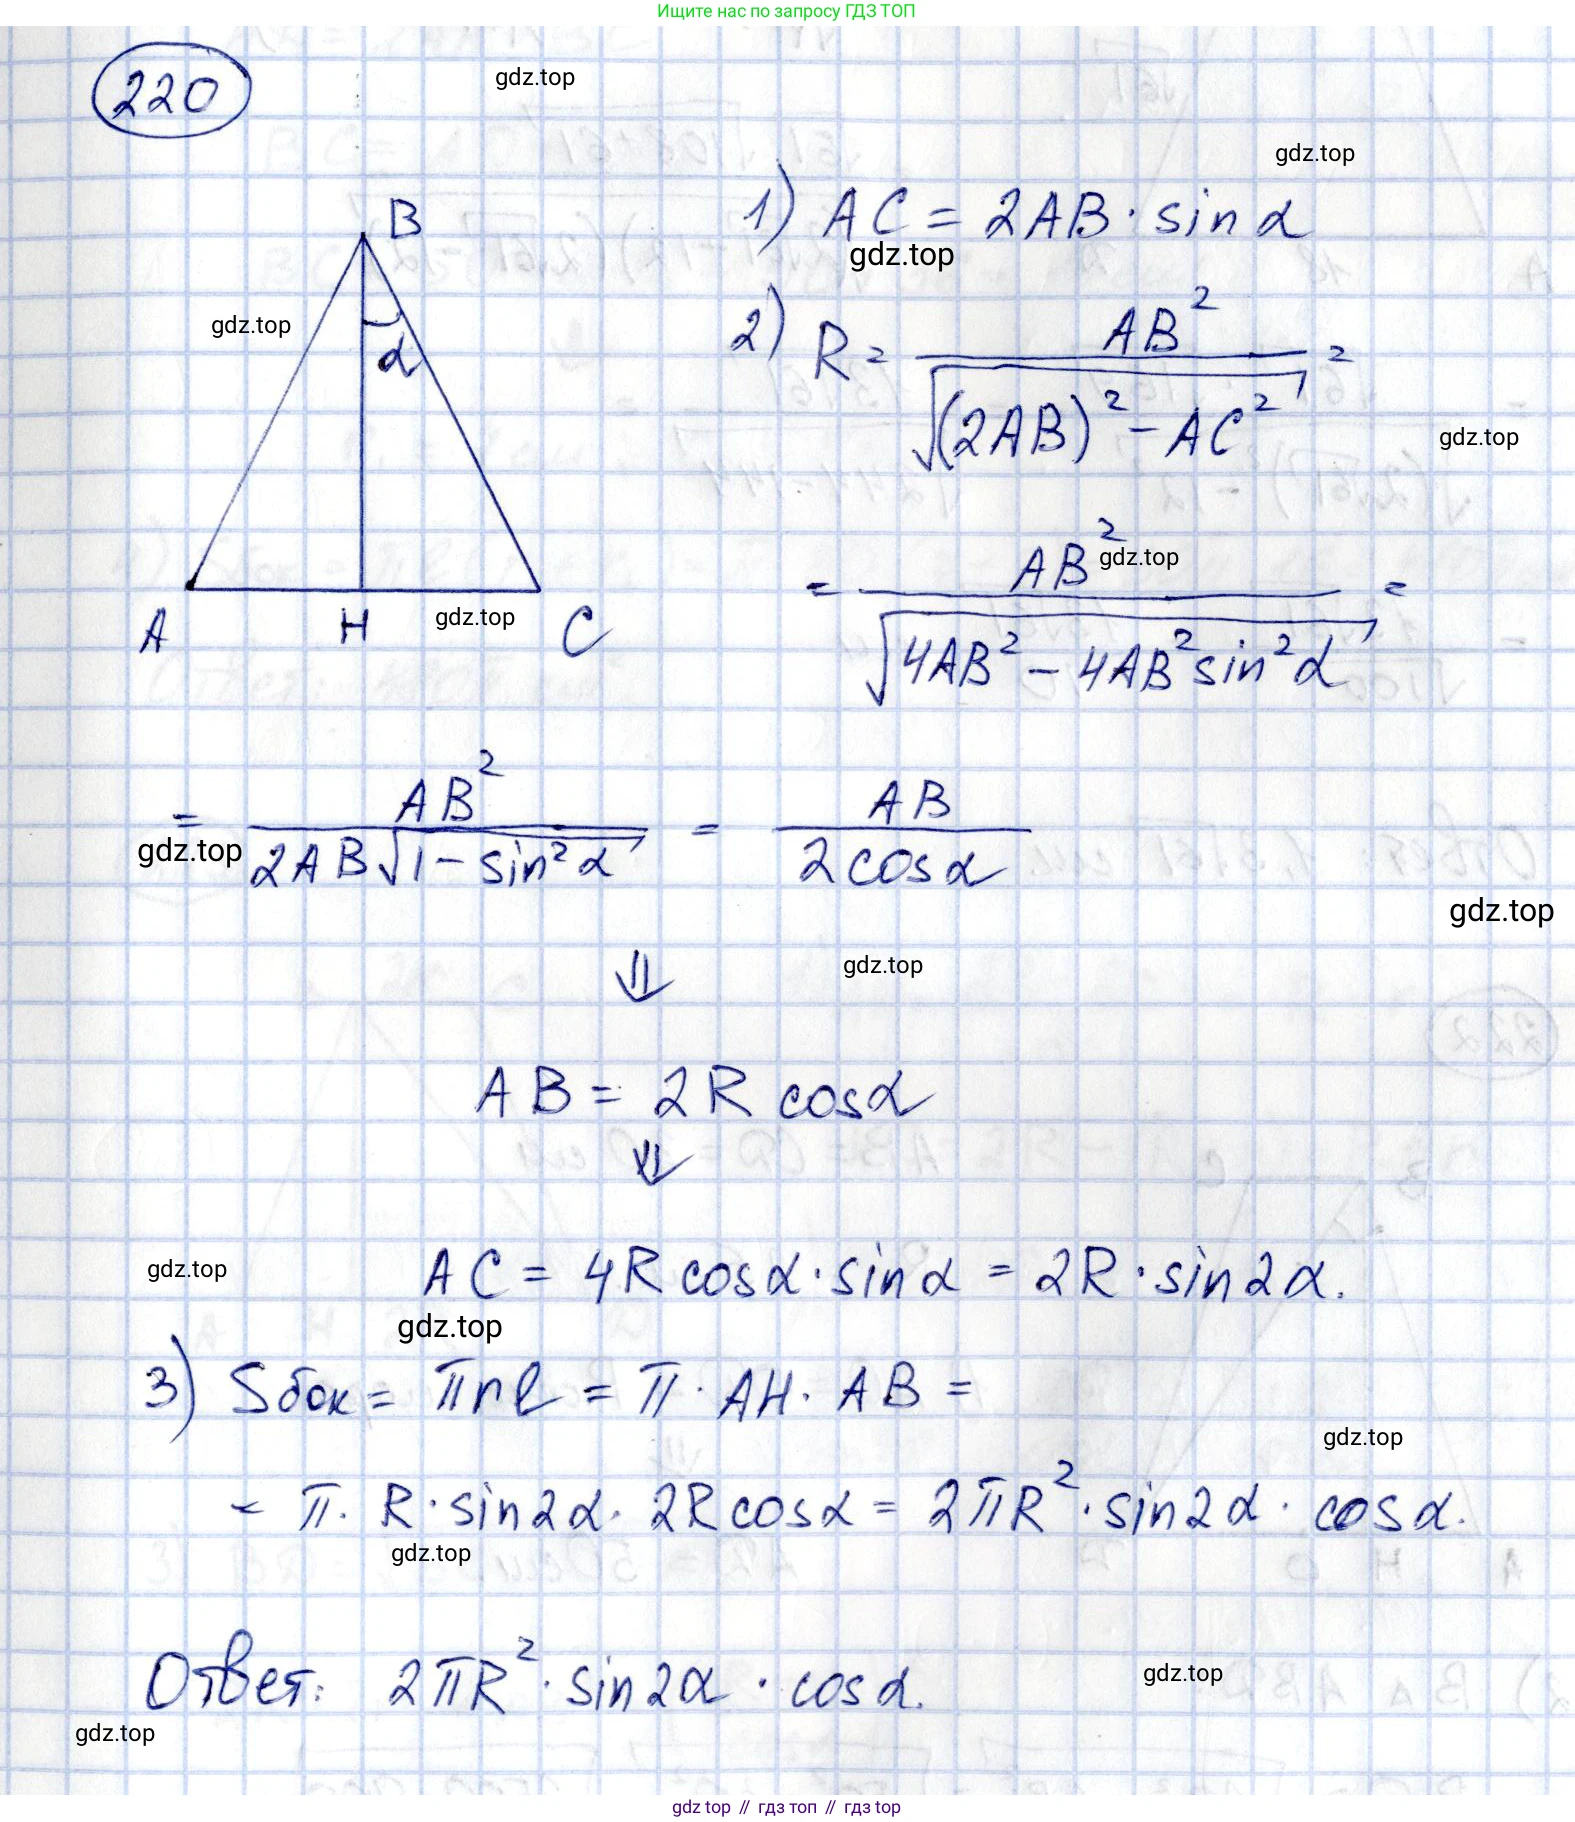 Ищите нас по запросу ГДЗ ТОП
220
gdz.top
gdz.top
B
1) AC = 2AB · sin α
gdz.top
gdz.top
α
2) R = AB² / √((2AB)² − AC²) =
gdz.top
= AB² / √(4AB² − 4AB² sin² α) =
gdz.top
A H C
gdz.top
= AB² / 2AB√(1 − sin² α) = AB / 2 cos α
gdz.top
gdz.top
⇓
gdz.top
AB = 2R cos α
⇓
AC = 4R cos α · sin α = 2R · sin 2α.
gdz.top
gdz.top
3) Sбок = πrl = π · AH · AB =
gdz.top
= π · R · sin 2α · 2R cos α = 2πR² · sin 2α · cos α.
gdz.top
Ответ: 2πR² · sin 2α · cos α.
gdz.top
gdz.top
gdz top // гдз топ // гдз top